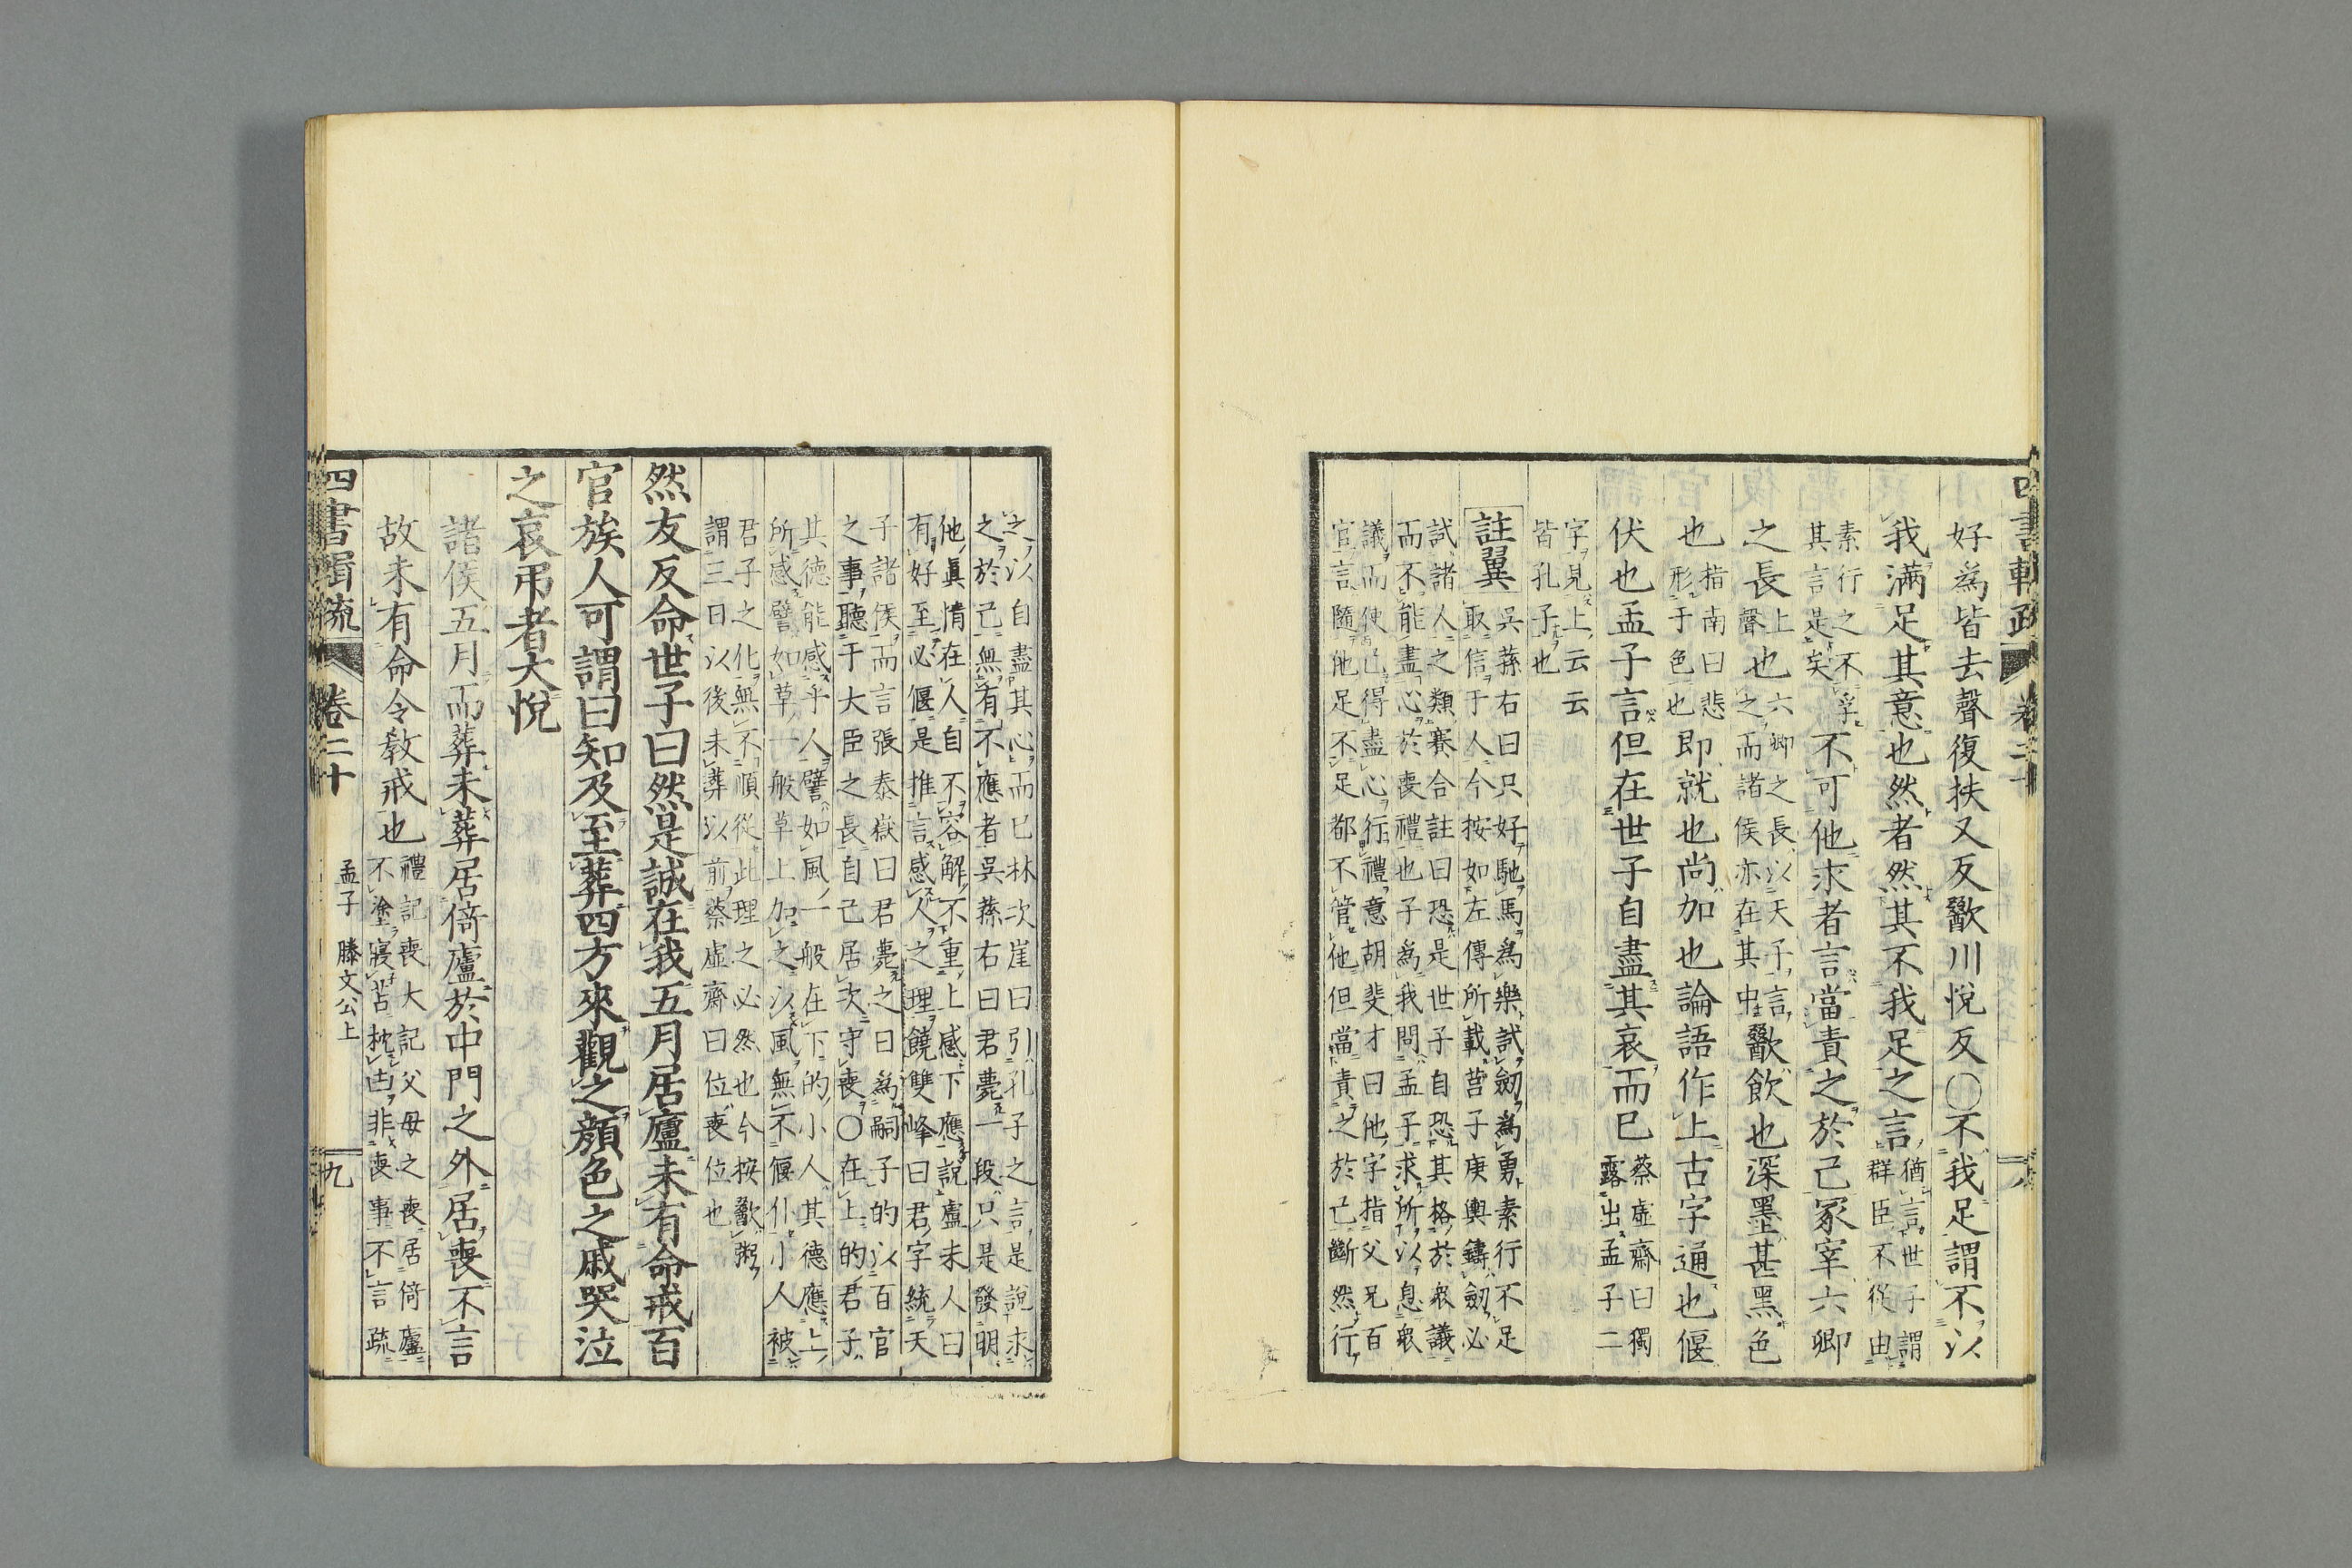 四書輯疏 卷二十 八
好為皆去聲復扶又反歠川悅反〇不我足謂不以
我滿足其意也然者然其不我足之言猶言世子謂
群臣不從由
素行之不孚
其言是矣不可他求者言當責之於己冢宰六卿
之長上
聲也六卿之長以天子言
之而諸侯亦在其中歠飲也深墨甚黑色
也指南曰悲
形于色也即就也尚加也論語作上古字通也偃
伏也孟子言但在世子自盡其哀而已蔡虛齋曰獨
露出孟子二
字見上云云
皆孔子也
註翼 吳蓀右曰只好馳馬為樂試劒為勇素行不足
取信于人今按如左傳所載莒子庚輿鑄劒必
試諸人之類賽合註曰恐是世子自恐其格於衆議
而不能盡心於喪禮也子為我問孟子求所以息衆
議而使己得盡心行禮意胡斐才曰他字指父兄百
官言隨他足不足都不管他但當責之於己斷然行
之以自盡其心而已林次崖曰引孔子之言是說求
之於己無有不應者吳蓀右曰君薨一段只是發明
他眞情在人自不容解不重上感下應說盧未人曰
有好至必偃是推言感人之理饒雙峰曰君字統天
子諸侯而言張泰嶽曰君薨之曰為嗣子的以百官
之事聽于大臣之長自己居次守喪〇在上的君子
其德能感乎人譬如風一般在下的小人其德應上
所感譬如草一般草上加之以風無不偃仆小人被
君子之化無不順從此理之必然也今按歠粥
謂三日以後未葬以前蔡虛齋曰位喪位也
然友反命世子曰然是誠在我五月居廬未有命戒百
官族人可謂曰知及至葬四方來觀之顏色之戚哭泣
之哀弔者大悅
諸侯五月而葬未葬居倚廬於中門之外居喪不言
故未有命令教戒也禮記喪大記父母之喪居倚廬
不塗寢苫枕凷非喪事不言疏
四書輯疏 卷二十 孟子 滕文公上 九